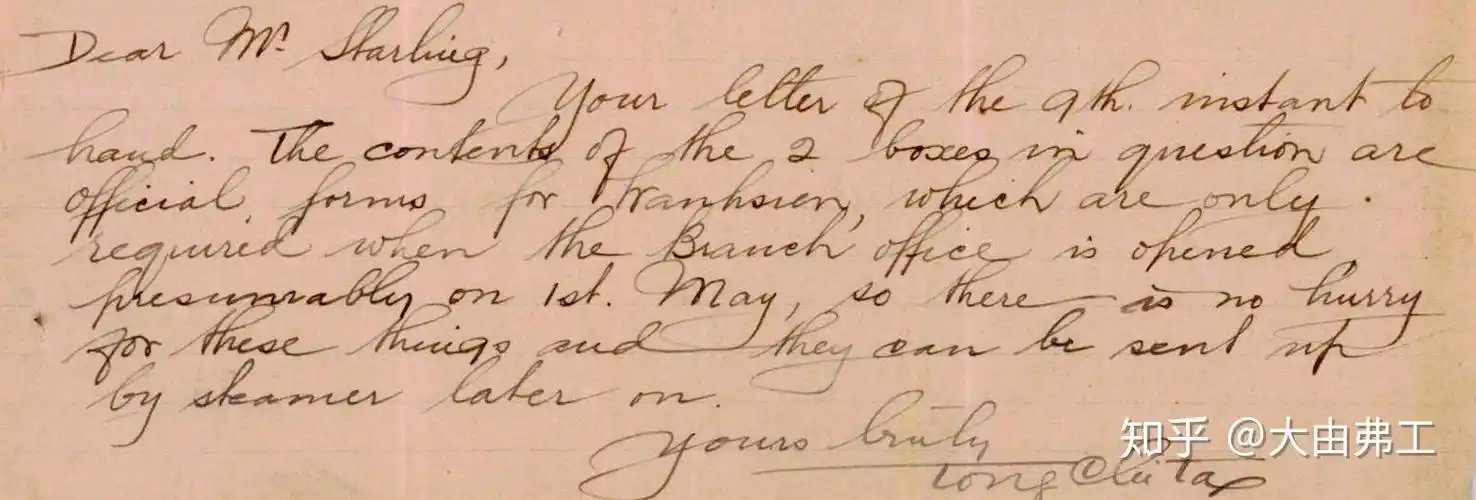 Dear Mr. Starling,
Your letter of the 9th. instant to
hand. The contents of the 2 boxes in question are
official forms for Wanhsien, which are only
required when the Branch office is opened,
presumably on 1st. May, so there is no hurry
for these things and they can be sent up
by steamer later on.
Yours truly
知乎 @大由弗工